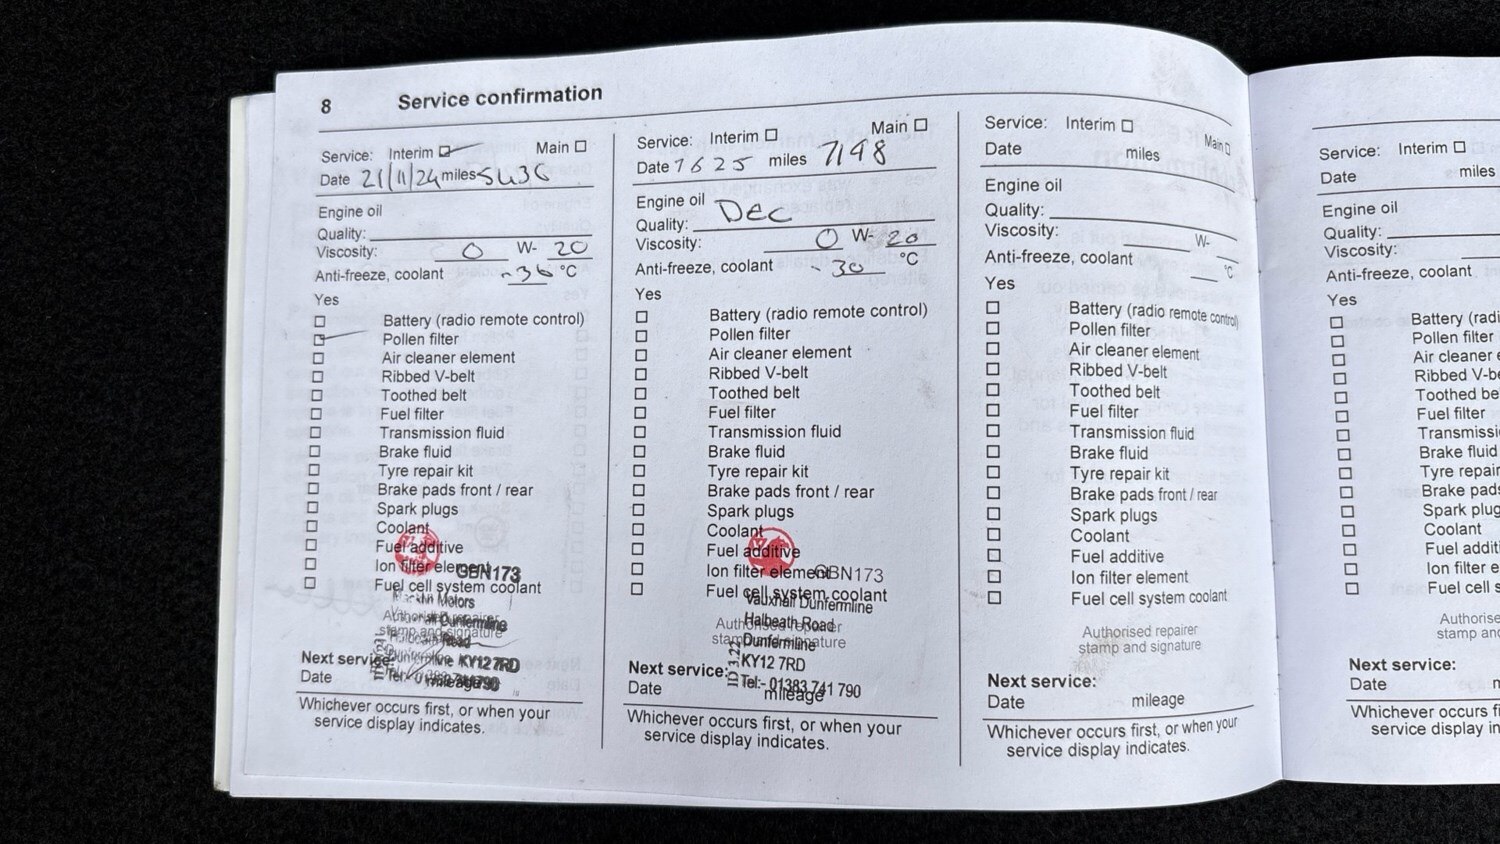 8 Service confirmation
Service: Interim Main
Date 21/11/24 miles 5436
Engine oil
Quality:
Viscosity: 0 W- 20
Anti-freeze, coolant -36 °C
Yes
Battery (radio remote control)
Pollen filter
Air cleaner element
Ribbed V-belt
Toothed belt
Fuel filter
Transmission fluid
Brake fluid
Tyre repair kit
Brake pads front / rear
Spark plugs
Coolant
Fuel additive
Ion filter element
GBN173
Fuel cell system coolant
Motors
Authorised repairer
stamp and signature
KY12 7RD
Next service:
Date mileage
Whichever occurs first, or when your
service display indicates.
Service: Interim Main
Date 7 6 25 miles 7198
Engine oil
Quality: Dec
Viscosity: 0 W- 20
Anti-freeze, coolant -30 °C
Yes
Battery (radio remote control)
Pollen filter
Air cleaner element
Ribbed V-belt
Toothed belt
Fuel filter
Transmission fluid
Brake fluid
Tyre repair kit
Brake pads front / rear
Spark plugs
Coolant
Fuel additive
Ion filter element
GBN173
Fuel cell system coolant
Vauxhall Dunfermline
Halbeath Road
Authorised repairer
stamp and signature
Dunfermline
KY12 7RD
Next service:
Tel:- 01383 741 790
Date mileage
Whichever occurs first, or when your
service display indicates.
Service: Interim Main
Date miles
Engine oil
Quality:
Viscosity: W-
Anti-freeze, coolant °C
Yes
Battery (radio remote control)
Pollen filter
Air cleaner element
Ribbed V-belt
Toothed belt
Fuel filter
Transmission fluid
Brake fluid
Tyre repair kit
Brake pads front / rear
Spark plugs
Coolant
Fuel additive
Ion filter element
Fuel cell system coolant
Authorised repairer
stamp and signature
Next service:
Date mileage
Whichever occurs first, or when your
service display indicates.
Service: Interim
Date miles
Engine oil
Quality:
Viscosity:
Anti-freeze, coolant
Yes
Battery (radi
Pollen filter
Air cleaner e
Ribbed V-be
Toothed be
Fuel filter
Transmissi
Brake fluid
Tyre repair
Brake pads
Spark plug
Coolant
Fuel additi
Ion filter e
Fuel cell s
Authorise
stamp an
Next service:
Date m
Whichever occurs fi
service display in